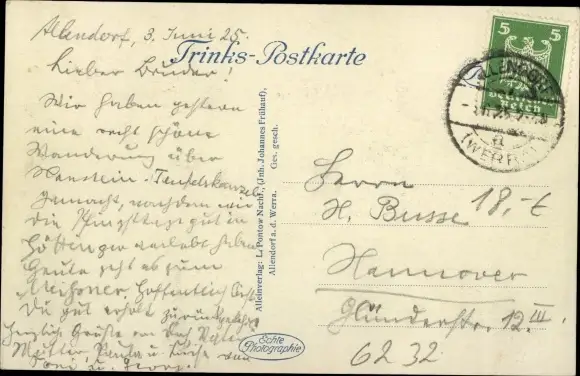 Allendorf, 3. Juni 25.
Trinks-Postkarte
Lieber Bruder!
Wir haben gestern
eine recht schöne
Wanderung über
Hanstein-Teufelskanzel
gemacht, nachdem wir
die Pfingsttage gut in
Göttingen verlebt haben.
Heute geht es zum
Meißner. Hoffentlich bist
Du gut erholt zurückgekehrt.
Herzliche Grüße von
Mutter,
Alleinverlag: L. Pontow Nachf., (Inh. Johannes Frühauf),
Allendorf a. d. Werra. Ges. gesch.
Echte
Photographie
5 5
Deutsches
Reich
ALLENDORF
(WERRA)
Herrn
H. Busse
18,-t
Hannover
Gründerstr. 12 III.
6232